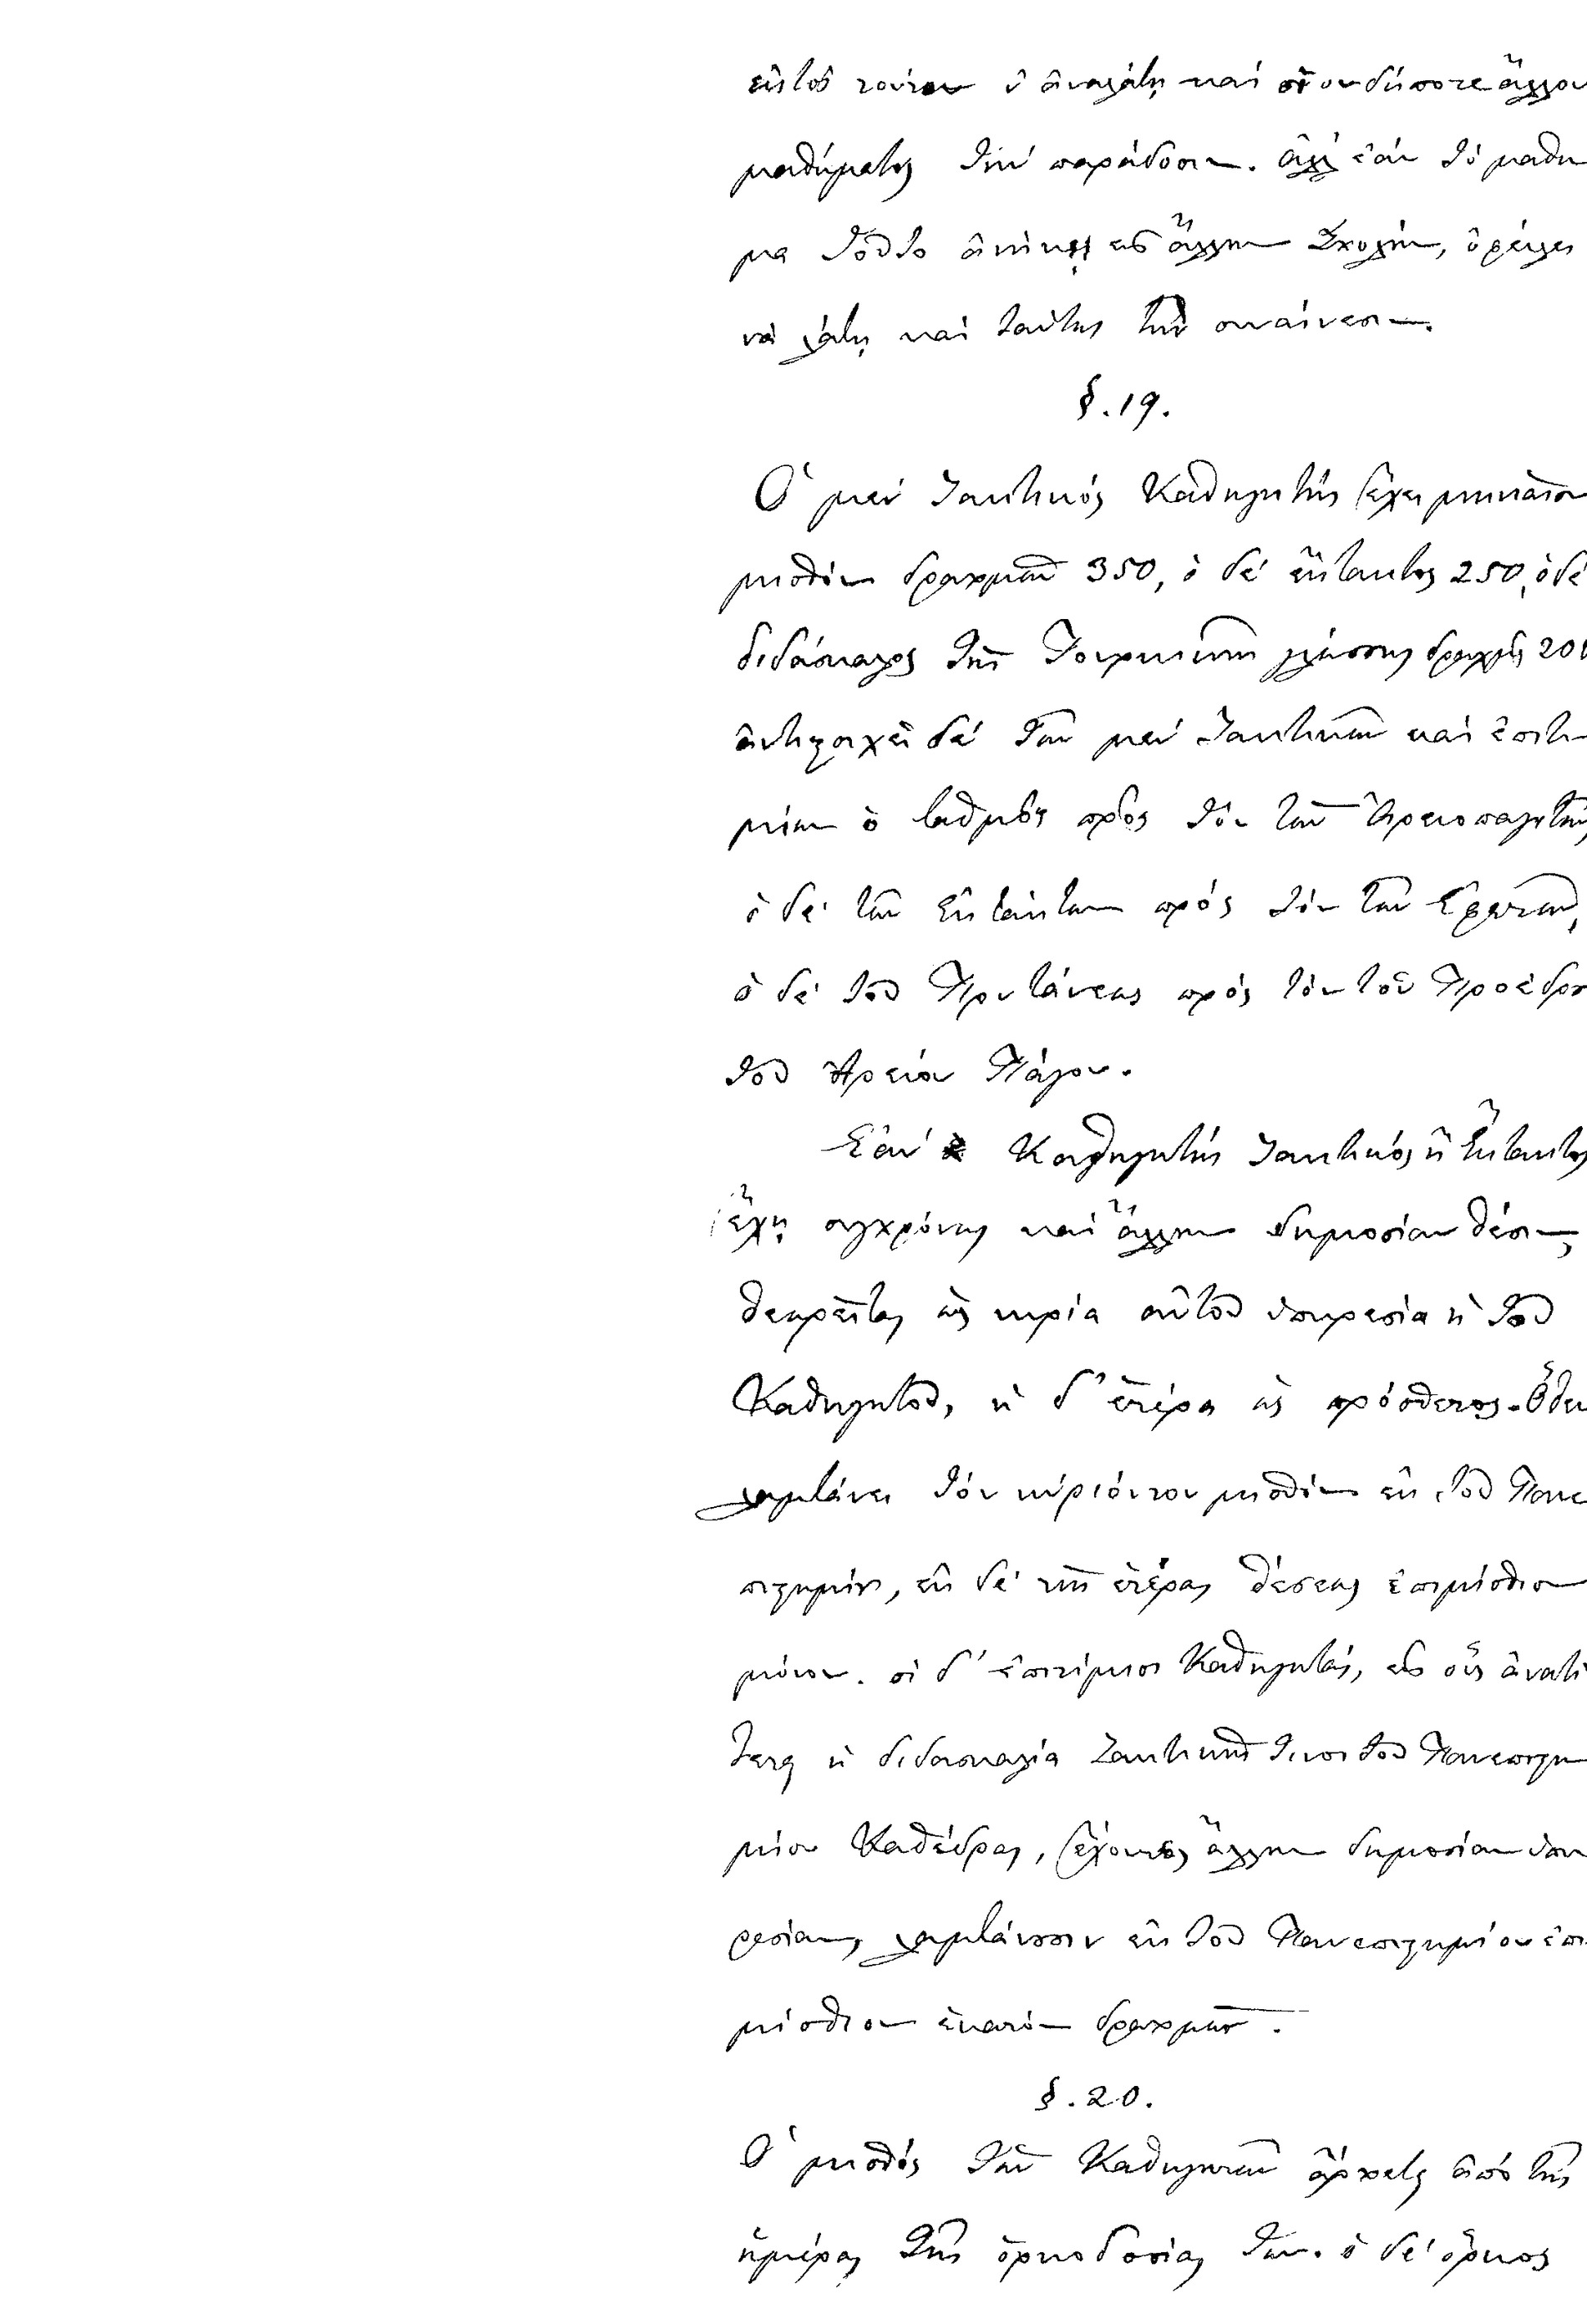 ἐκτὸς τούτου ν' ἀναλάβῃ καὶ οἱουδήποτε ἄλλου
μαθήματος τὴν παράδοσιν. ἀλλ' ἐὰν τὸ μάθη
μα τοῦτο ἀνήκῃ εἰς ἄλλην Σχολήν, ὀφείλει
νὰ λάβῃ καὶ ταύτης τὴν συναίνεσιν.
§. 19.
Ὁ μὲν Τακτικὸς Καθηγητὴς ἔχει μηνιαῖον
μισθὸν δραχμῶν 350, ὁ δὲ ἔκτακτος 250, ὁ δὲ
διδάσκαλος τῆς Τουρκικῆς γλώσσης δραχμὰς 200
ἀντιστοιχεῖ δὲ τῶν μὲν Τακτικῶν καὶ ἐπιτι
μίων ὁ βαθμὸς πρὸς τὸν τῶν Ἀρειοπαγιτῶν,
ὁ δὲ τῶν Ἐκτάκτων πρὸς τὸν τῶν Ἐφετῶν,
ὁ δὲ τοῦ Πρυτάνεως πρὸς τὸν τοῦ Προέδρου
τοῦ Ἀρείου Πάγου.
Ἐὰν Καθηγητὴς Τακτικὸς ἢ Ἔκτακτος
ἔχῃ συγχρόνως καὶ ἄλλην δημοσίαν θέσιν,
θεωρεῖται ὡς κυρία αὐτοῦ ὑπηρεσία ἡ τοῦ
Καθηγητοῦ, ἡ δ' ἑτέρα ὡς πρόσθετος. Ὅθεν
λαμβάνει τὸν κύριόν του μισθὸν ἐκ τοῦ Πανε
πιστημίου, ἐκ δὲ τῆς ἑτέρας θέσεως ἐπιμίσθιον
μόνον. οἱ δ' ἐπιτίμιοι Καθηγηταί, εἰς οὓς ἀνατί
θεται ἡ διδασκαλία Τακτικῆς τινος τοῦ Πανεπιστη
μίου Καθέδρας, ἔχοντες ἄλλην δημοσίαν ὑπη
ρεσίαν, λαμβάνουσιν ἐκ τοῦ Πανεπιστημίου ἐπι
μίσθιον ἑκατὸν δραχμῶν.
§. 20.
Ὁ μισθὸς τῶν Καθηγητῶν ἄρχεται ἀπὸ τῆς
ἡμέρας τῆς ὁρκοδοσίας των. ὁ δὲ ὅρκος